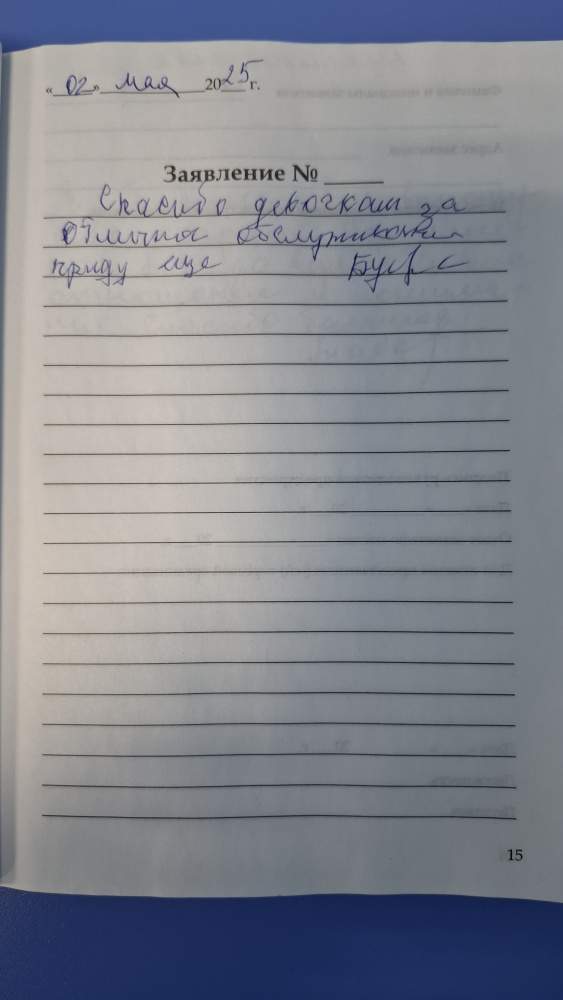 « 02 » мая 2025 г.
Заявление № _____
Спасибо девочкам за
отличное обслуживание
приду еще
15